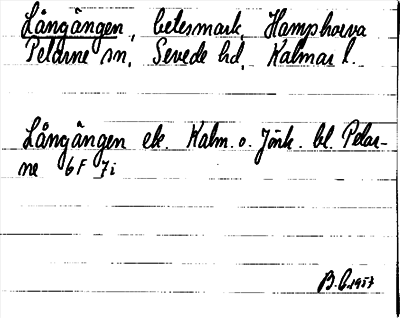 Långängen, betesmark, Hamphorva
Pelarne sn, Sevede hd, Kalmar l.
Långängen ek. Kalm. o. Jönk. bl. Pelar-
ne 6F 7i
1957